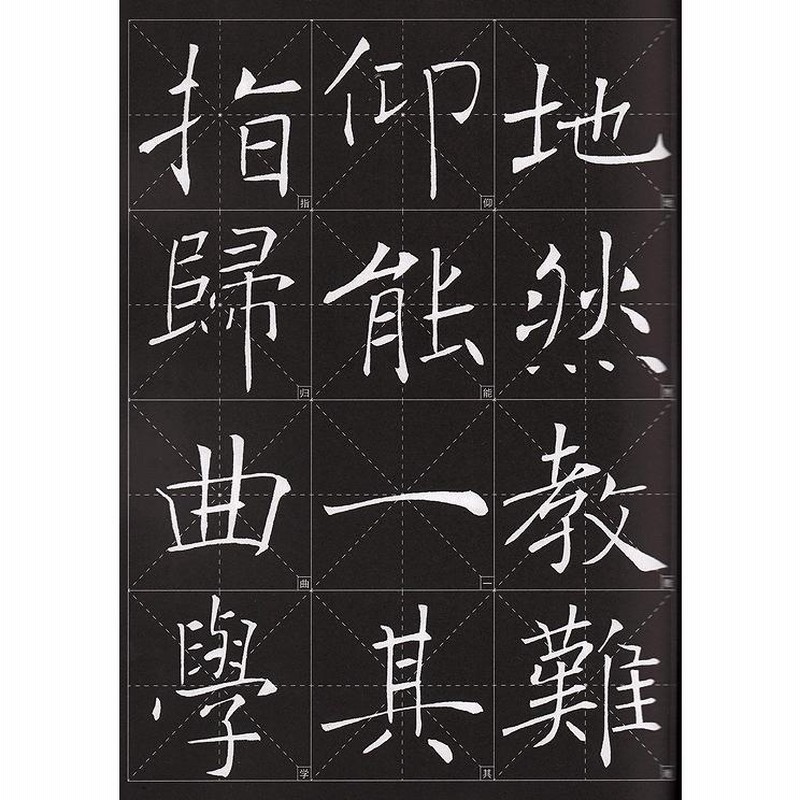 地然教難
仰能一其
指歸曲學
仰
能
一
其
指
归
曲
学